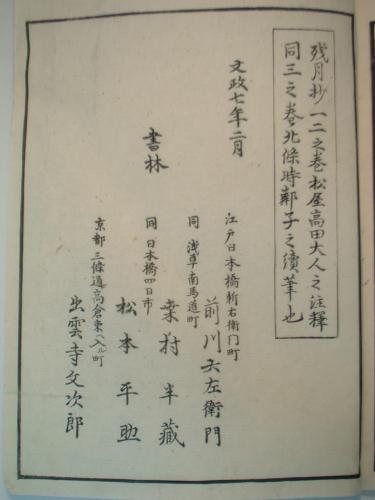 残月抄一二之巻松屋高田大人之注釋
同三之巻北條時鄰子之續筆也
文政七年二月
書林
江戸日本橋新右衛門町
前川六左衛門
同浅草南馬道町
桑村半藏
同日本橋四日市
松本平助
京都三條通高倉東ヘ入ル町
出雲寺文次郎